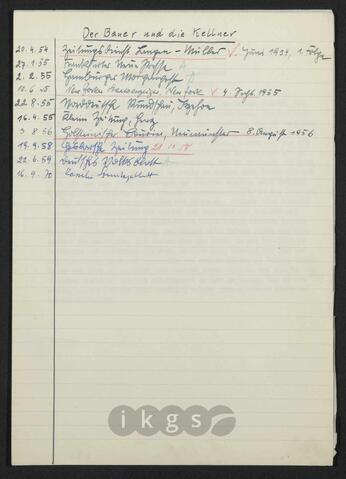 Der Bauer und die Kellner
20.4.54 Zeitungsdienst Langen-Müller √. Juni 1954, 1. Folge
27.1.55 Frankfurter Neue Presse
2.2.55 Hamburger Morgenpost
10.6.55 New Yorker Staatszeitung, New York √ 4. Sept. 1955
22.8.55 Norddeutsche Rundschau, Itzehoe
16.4.55 Kleine Zeitung, Graz
3.8.56 Holsteinischer Courier, Neumünster 8. August 1956
19.9.58 Zeitung 21.10.58
22.6.59 Deutsches Volksblatt
16.9.70 Sonntagsblatt
ikgs